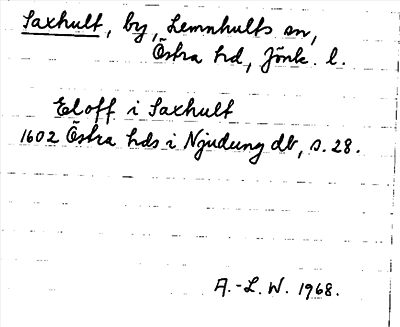 Saxhult, by, Lemnhults sn,
Östra hd, Jönk. l.
Eloff i Saxhult
1602 Östra hds i Njudung db, s. 28.
A.-L. W. 1968.